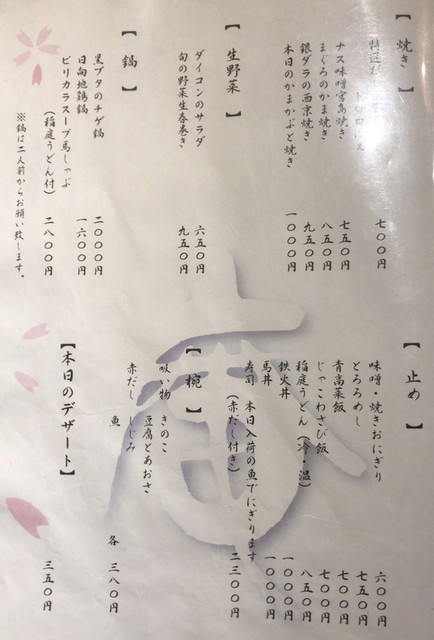 【焼き】
特選
七〇〇円
ナス味噌宮高焼き 七五〇円
まぐろのかま焼き 八五〇円
銀ダラの西京焼き 九五〇円
本日のかまかぶと焼き 一〇〇〇円
【生野菜】
ダイコンのサラダ 六五〇円
旬の野菜生春巻き 九五〇円
【鍋】
黒ブタのチゲ鍋 二〇〇〇円
日向地鶏鍋 一六〇〇円
ピリカラスープ馬しゃぶ
(稲庭うどん付) 二八〇〇円
※鍋は二人前からお願い致します。
【止め】
味噌・焼きおにぎり 六〇〇円
とろろめし 七五〇円
青高菜飯 七〇〇円
じゃこわさび飯 七〇〇円
稲庭うどん(冷・温) 八五〇円
鉄火丼 一〇〇〇円
馬丼 一〇〇〇円
寿司 本日入荷の魚でにぎります
(赤だし付き) 二三〇〇円
【椀】
吸い物 きのこ
豆腐とあおさ
赤だし しじみ
魚
各 三八〇円
【本日のデザート】
三五〇円
庵